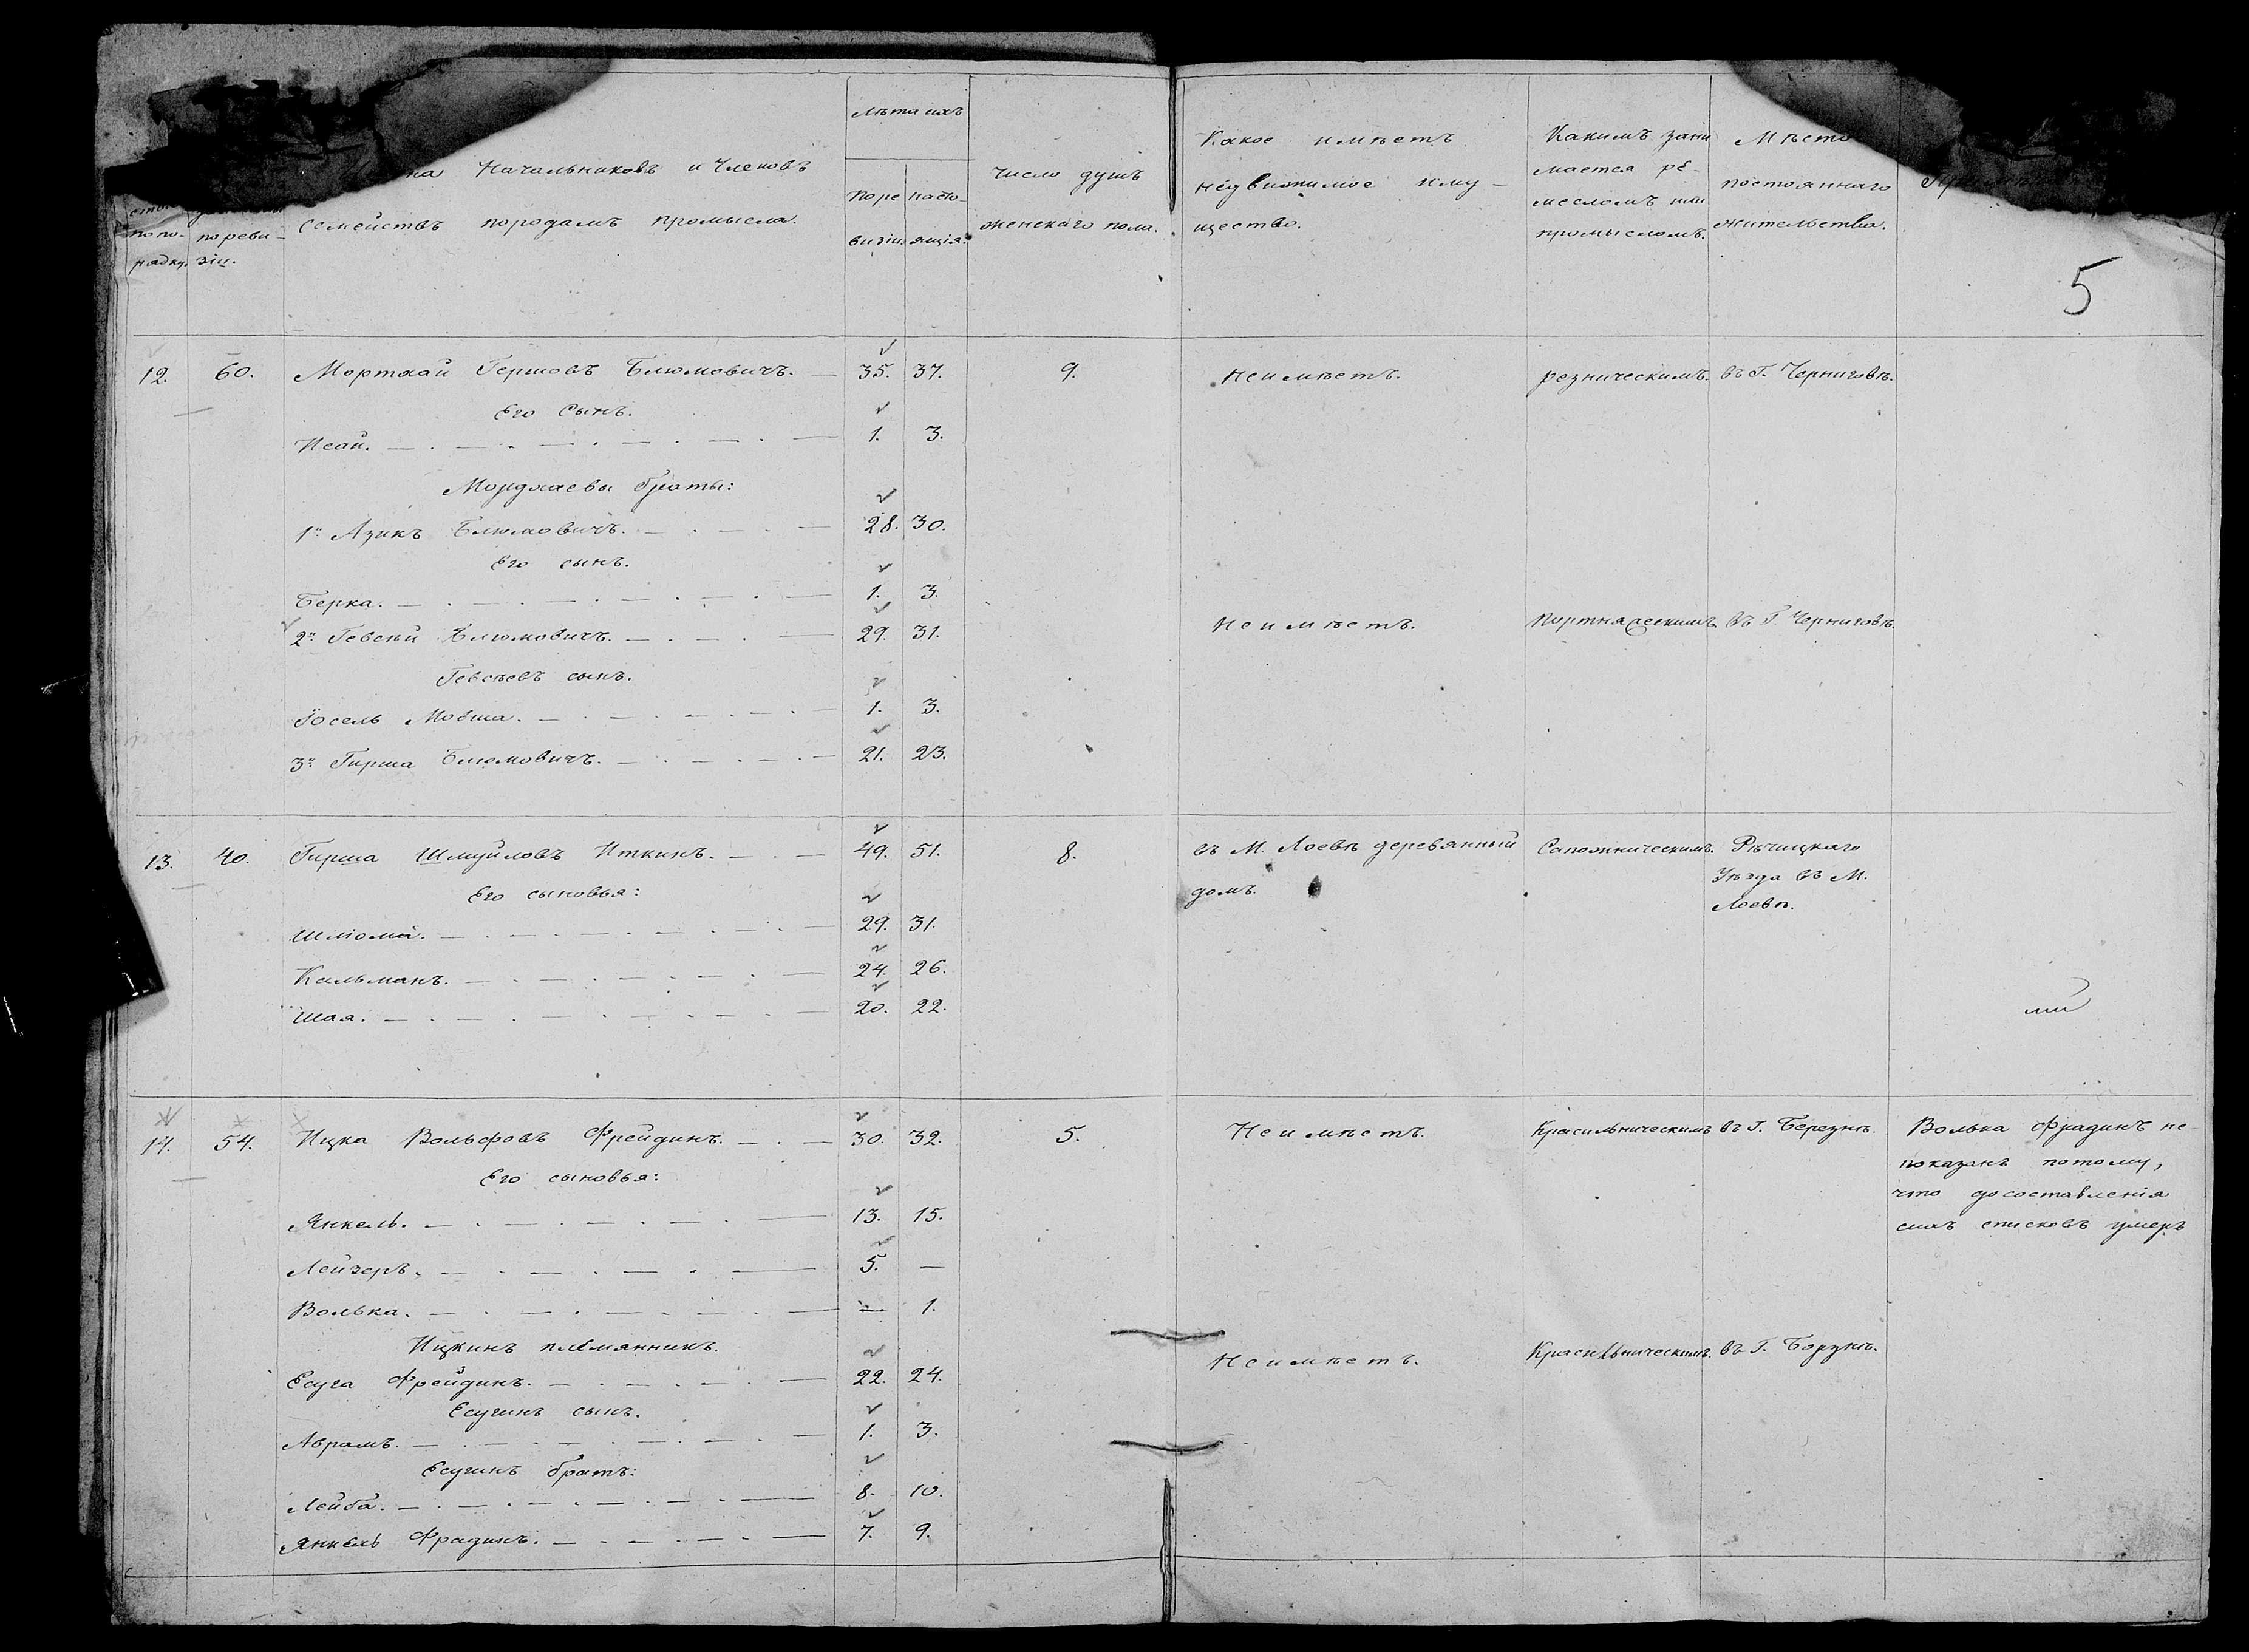 на Начальниковъ и Членовъ
семействъ породамъ промысла.
по по-
рядку.
по реви-
зіи.
лѣта ихъ
по ре
визіи.
насто-
ящія.
число душъ
женскаго пола.
Какое имѣетъ
недвижимое иму-
щество.
Какимъ зани
мается ре-
месломъ или
промысломъ.
Мѣсто
постояннаго
жительства.
5
12. 60. Мортхай Гершовъ Блюмовичъ. 35. 37. 9. Неимѣетъ. резническимъ. въ Г. Черниговѣ.
Его Сынъ.
Исай. 1. 3.
Мордхаевы браты:
1й Азикъ Блюмовичъ. 28. 30.
Его сынъ.
Берка. 1. 3.
2й Гевсѣй Блюмовичъ. 29. 31. Неимѣетъ. Портняческимъ. въ Г. Черниговѣ.
Гевсѣевъ сынъ.
Іосель Мовша. 1. 3.
3й Гирша Блюмовичъ. 21. 23.
13. 40. Гирша Шмуйловъ Иткинъ. 49. 51. 8. въ М. Лоевѣ деревянный Сапожническимъ. Рѣчицкаго
домъ. Уѣзда въ М.
Лоевѣ.
Его сыновья:
Шліома. 29. 31.
Кальманъ. 24. 26.
Шая. 20. 22.
14. 54. Ицка Вольфовъ Фрейдинъ. 30. 32. 5. Неимѣетъ. Красильническимъ въ Г. Березнѣ. Волька Фрадинъ не-
показанъ потому,
что досоставленія
сихъ списковъ умеръ
Его сыновья:
Янкель. 13. 15.
Лейзеръ. 5. —
Волька. — 1.
Ицкинъ племянникъ.
Есуга Фрейдинъ. 22. 24. Неимѣетъ. Красильническимъ. въ Г. Борзнѣ.
Есугинъ сынъ.
Абрамъ. 1. 3.
Есугинъ братъ:
Лейба. 8. 10.
Янкель Фрадинъ. 7. 9.